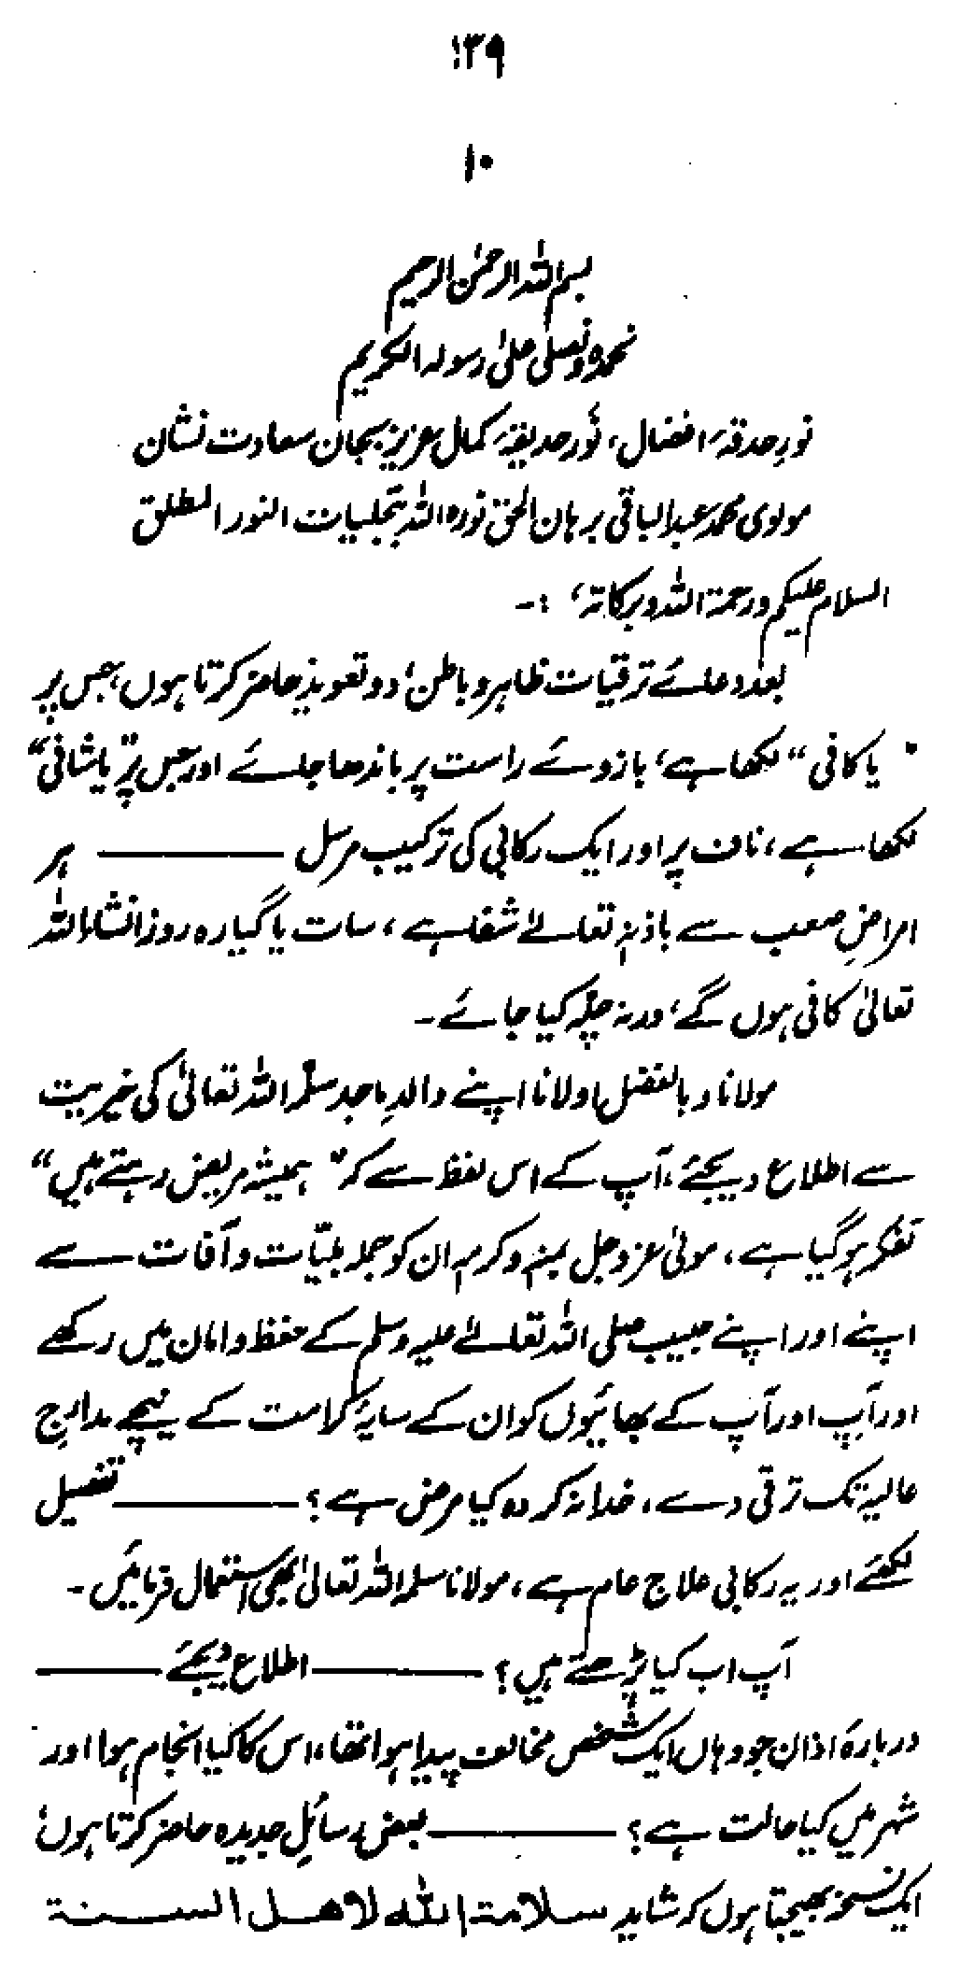 ۱۳۹
۱۰
بسم اللہ الرحمٰن الرحیم
نحمدہ و نصلی علیٰ رسولہ الکریم
نورِ حدقۂ افضال، نَورِ حدیقۂ کمال عزیز بجان سعادت نشان
مولوی محمد عبدالباقی برہان الحق نورہ اللہ بتجلیات النور المطلق
السلام علیکم ورحمۃ اللہ وبرکاتہ، :۔
بعد دعائے ترقیات ظاہر و باطن، دو تعویذ حاضر کرتا ہوں، جس پر
"یا کافی" لکھا ہے، بازوئے راست پر باندھا جائے اور جس پر "یا شافی"
لکھا ہے، ناف پر اور ایک رکابی کی ترکیب مرسل ——— ہر
امراضِ صعب سے باذنہٖ تعالیٰ شفا ہے، سات یا گیارہ روز انشاء اللہ
تعالیٰ کافی ہوں گے، ورنہ چلّہ کیا جائے۔
مولانا و بالفضل اولانا اپنے والدِ ماجد سلّمہ اللہ تعالیٰ کی خیریت
سے اطلاع دیجئے، آپ کے اس لفظ سے کہ "ہمیشہ مریض رہتے ہیں"
تفکر ہو گیا ہے، مولیٰ عزوجل بمنہٖ و کرمہٖ ان کو جملہ بلیّات و آفات سے
اپنے اور اپنے حبیب صلی اللہ تعالےٰ علیہ وسلم کے حفظ و امان میں رکھے
اور آپ اور آپ کے بھائیوں کو ان کے سایۂ کرامت کے نیچے مدارجِ
عالیہ تک ترقی دے، خدا نہ کردہ کیا مرض ہے؟ ——— تفصیل
لکھئے اور یہ رکابی علاج عام ہے، مولانا سلمہ اللہ تعالیٰ بھی استعمال فرمائیں۔
آپ اب کیا پڑھتے ہیں؟ ——— اطلاع دیجئے ———
دربارۂ اذان جو وہاں ایک شخص مخالف پیدا ہوا تھا، اس کا کیا انجام ہوا اور
شہر میں کیا حالت ہے؟ ——— بعض رسائلِ جدیدہ حاضر کرتا ہوں،
ایک نسخہ بھیجتا ہوں کہ شاید سلامۃ اللہ لاھل السنۃ